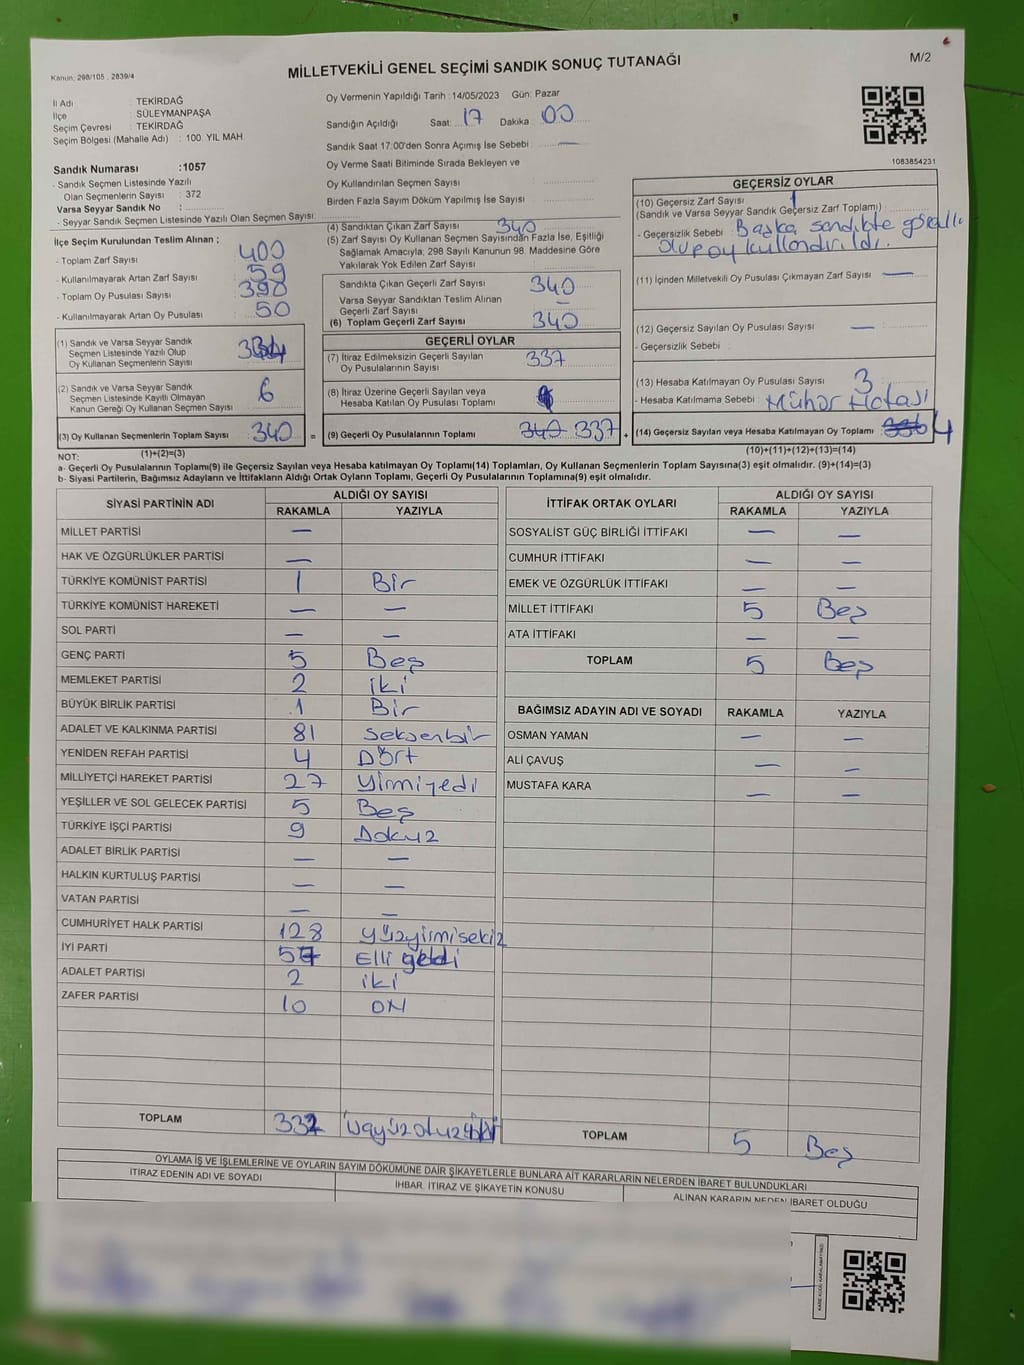 M/2
Kanun: 298/105 , 2839/4
MİLLETVEKİLİ GENEL SEÇİMİ SANDIK SONUÇ TUTANAĞI
İl Adı : TEKİRDAĞ
İlçe : SÜLEYMANPAŞA
Seçim Çevresi : TEKİRDAĞ
Seçim Bölgesi (Mahalle Adı) : 100. YIL MAH.
Sandık Numarası :1057
- Sandık Seçmen Listesinde Yazılı
Olan Seçmenlerin Sayısı : 372
Varsa Seyyar Sandık No :
- Seyyar Sandık Seçmen Listesinde Yazılı Olan Seçmen Sayısı:
Oy Vermenin Yapıldığı Tarih : 14/05/2023 Gün: Pazar
Sandığın Açıldığı Saat: 17 Dakika 00
Sandık Saat 17:00'den Sonra Açımış İse Sebebi —
Oy Verme Saati Bitiminde Sırada Bekleyen ve
Oy Kullandırılan Seçmen Sayısı
Birden Fazla Sayım Döküm Yapılmış İse Sayısı
1083854231
İlçe Seçim Kurulundan Teslim Alınan ;
- Toplam Zarf Sayısı : 400
- Kullanılmayarak Artan Zarf Sayısı : 59
- Toplam Oy Pusulası Sayısı : 398
- Kullanılmayarak Artan Oy Pusulası : 50
(1) Sandık ve Varsa Seyyar Sandık
Seçmen Listesinde Yazılı Olup
Oy Kullanan Seçmenlerin Sayısı
(2) Sandık ve Varsa Seyyar Sandık
Seçmen Listesinde Kayıtlı Olmayan
Kanun Gereği Oy Kullanan Seçmen Sayısı 6
(3) Oy Kullanan Seçmenlerin Toplam Sayısı 340 =
(4) Sandıktan Çıkan Zarf Sayısı 340
(5) Zarf Sayısı Oy Kullanan Seçmen Sayısından Fazla İse, Eşitliği
Sağlamak Amacıyla; 298 Sayılı Kanunun 98. Maddesine Göre
Yakılarak Yok Edilen Zarf Sayısı
Sandıkta Çıkan Geçerli Zarf Sayısı 340
Varsa Seyyar Sandıktan Teslim Alınan
Geçerli Zarf Sayısı —
(6) Toplam Geçerli Zarf Sayısı 340
GEÇERLİ OYLAR
(7) İtiraz Edilmeksizin Geçerli Sayılan
Oy Pusulalarının Sayısı 337
(8) İtiraz Üzerine Geçerli Sayılan veya
Hesaba Katılan Oy Pusulası Toplamı
(9) Geçerli Oy Pusulalarının Toplamı 340 337 +
GEÇERSİZ OYLAR
(10) Geçersiz Zarf Sayısı 1
(Sandık ve Varsa Seyyar Sandık Geçersiz Zarf Toplamı) :
- Geçersizlik Sebebi Başka sandıkta görevli
olup oy kullandırıldı.
(11) İçinden Milletvekili Oy Pusulası Çıkmayan Zarf Sayısı —
(12) Geçersiz Sayılan Oy Pusulası Sayısı —
- Geçersizlik Sebebi :
(13) Hesaba Katılmayan Oy Pusulası Sayısı 3
- Hesaba Katılmama Sebebi Mühür Hatası
(14) Geçersiz Sayılan veya Hesaba Katılmayan Oy Toplamı : 4
NOT: (1)+(2)=(3) (10)+(11)+(12)+(13)=(14)
a- Geçerli Oy Pusulalarının Toplamı(9) ile Geçersiz Sayılan veya Hesaba katılmayan Oy Toplamı(14) Toplamları, Oy Kullanan Seçmenlerin Toplam Sayısına(3) eşit olmalıdır. (9)+(14)=(3)
b- Siyasi Partilerin, Bağımsız Adayların ve İttifakların Aldığı Ortak Oyların Toplamı, Geçerli Oy Pusulalarının Toplamına(9) eşit olmalıdır.
SİYASİ PARTİNİN ADI ALDIĞI OY SAYISI
RAKAMLA YAZIYLA
MİLLET PARTİSİ —
HAK VE ÖZGÜRLÜKLER PARTİSİ —
TÜRKİYE KOMÜNİST PARTİSİ 1 Bir
TÜRKİYE KOMÜNİST HAREKETİ — —
SOL PARTİ — —
GENÇ PARTİ 5 Beş
MEMLEKET PARTİSİ 2 iki
BÜYÜK BİRLİK PARTİSİ 1 Bir
ADALET VE KALKINMA PARTİSİ 81 seksenbir
YENİDEN REFAH PARTİSİ 4 Dört
MİLLİYETÇİ HAREKET PARTİSİ 27 yirmiyedi
YEŞİLLER VE SOL GELECEK PARTİSİ 5 Beş
TÜRKİYE İŞÇİ PARTİSİ 9 Dokuz
ADALET BİRLİK PARTİSİ — —
HALKIN KURTULUŞ PARTİSİ — —
VATAN PARTİSİ — —
CUMHURİYET HALK PARTİSİ 128 yüzyirmisekiz
İYİ PARTİ 57 Elli yedi
ADALET PARTİSİ 2 iki
ZAFER PARTİSİ 10 ON
TOPLAM 332
İTTİFAK ORTAK OYLARI ALDIĞI OY SAYISI
RAKAMLA YAZIYLA
SOSYALİST GÜÇ BİRLİĞİ İTTİFAKI — —
CUMHUR İTTİFAKI — —
EMEK VE ÖZGÜRLÜK İTTİFAKI — —
MİLLET İTTİFAKI 5 Beş
ATA İTTİFAKI — —
TOPLAM 5 Beş
BAĞIMSIZ ADAYIN ADI VE SOYADI RAKAMLA YAZIYLA
OSMAN YAMAN — —
ALİ ÇAVUŞ — —
MUSTAFA KARA — —
TOPLAM 5 Beş
OYLAMA İŞ VE İŞLEMLERİNE VE OYLARIN SAYIM DÖKÜMÜNE DAİR ŞİKAYETLERLE BUNLARA AİT KARARLARIN NELERDEN İBARET BULUNDUKLARI
İTİRAZ EDENİN ADI VE SOYADI İHBAR, İTİRAZ VE ŞİKAYETİN KONUSU ALINAN KARARIN NEDEN İBARET OLDUĞU